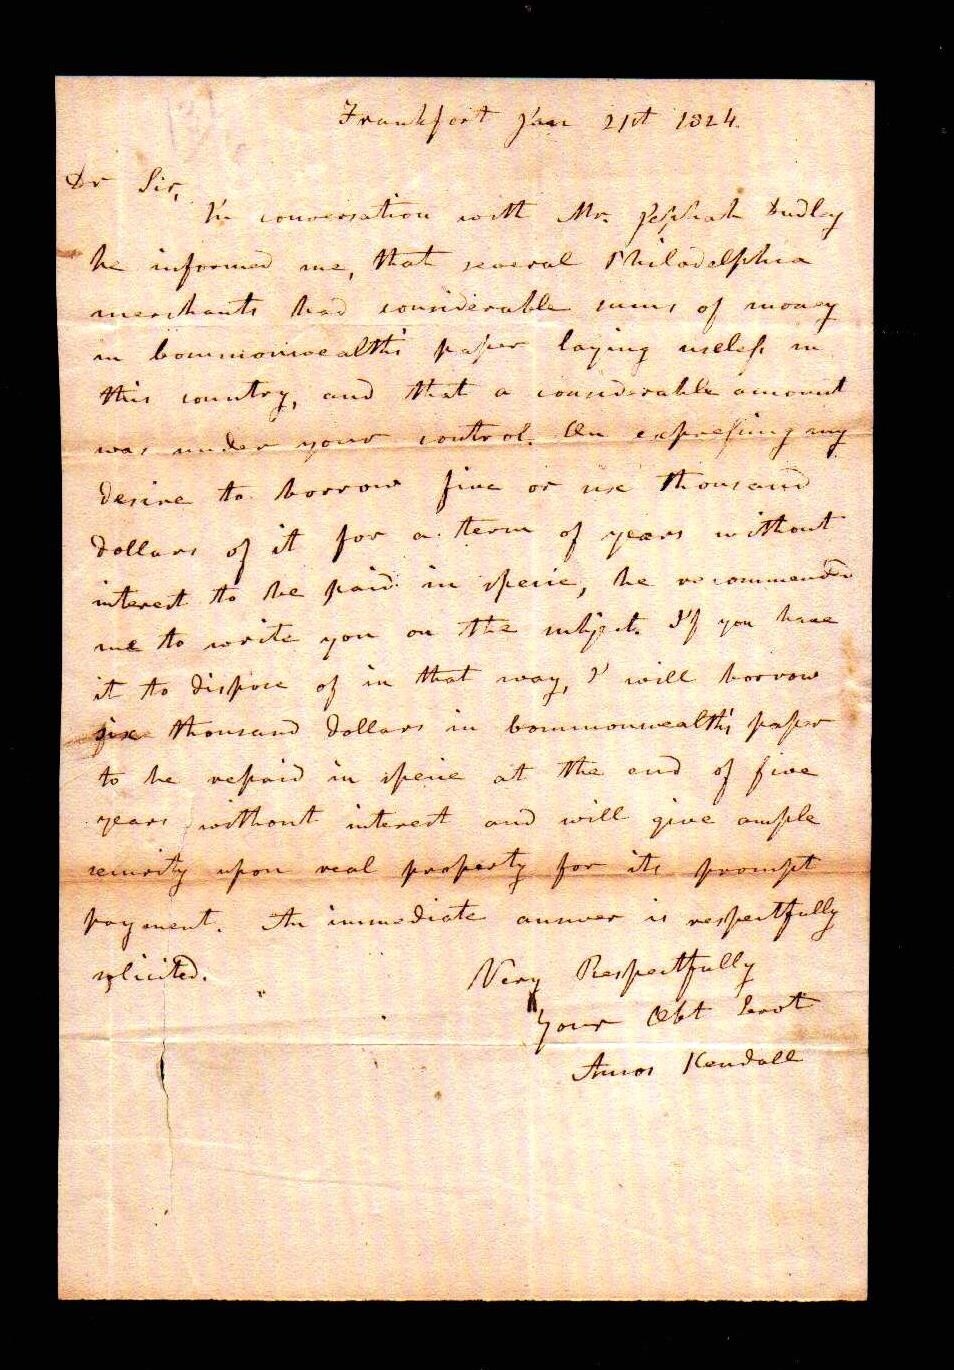 Frankfort Jan 21st 1824.
Dr Sir,
In conversation with Mr. Jephthah Dudley
he informed me, that several Philadelphia
merchants had considerable sums of money
in Commonwealth's paper laying useless in
this country, and that a considerable amount
was under your control. On expressing my
desire to borrow five or six thousand
dollars of it for a term of years without
interest to be paid in specie, he recommended
me to write you on the subject. If you have
it to dispose of in that way, I will borrow
six thousand dollars in Commonwealth's paper
to be repaid in specie at the end of five
years without interest and will give ample
security upon real property for its prompt
payment. An immediate answer is respectfully
solicited.
Very Respectfully
Your Obt Servt
Amos Kendall